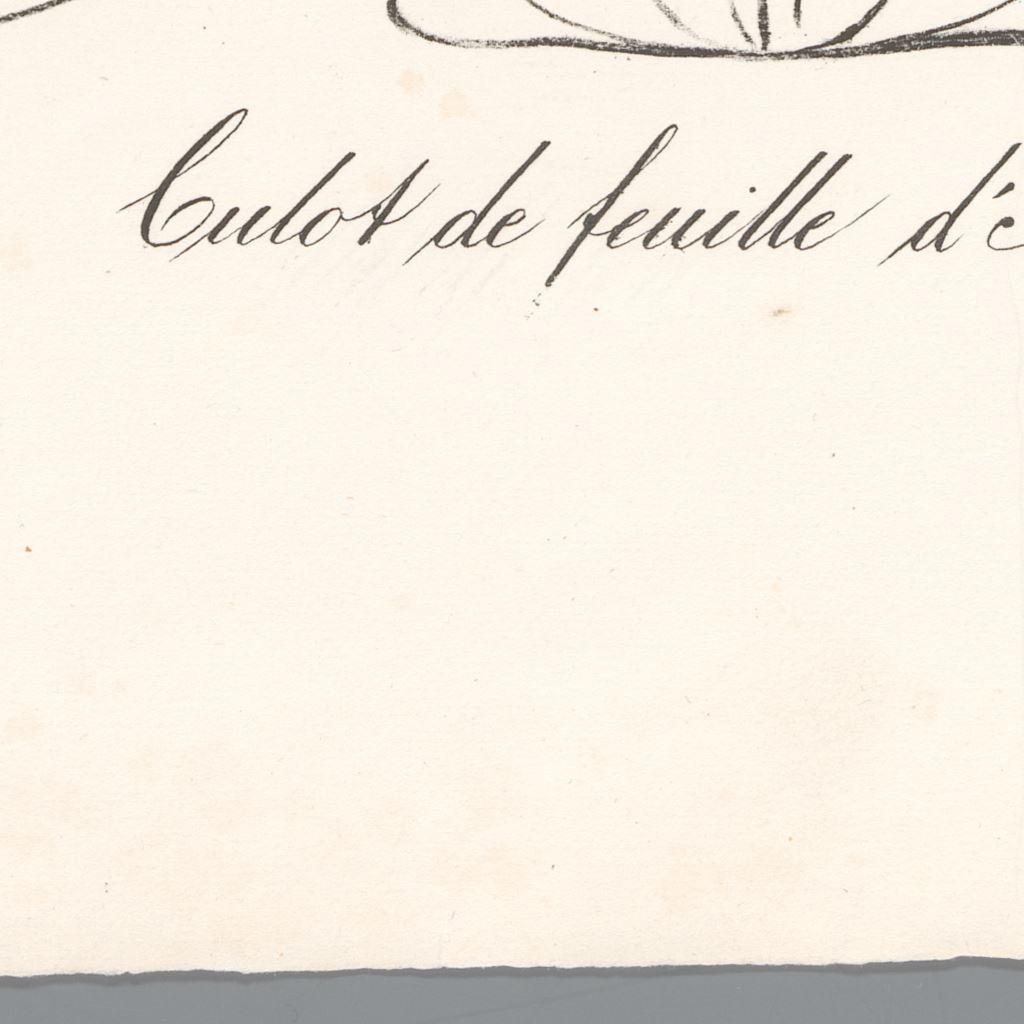 Culot de feuille d'e